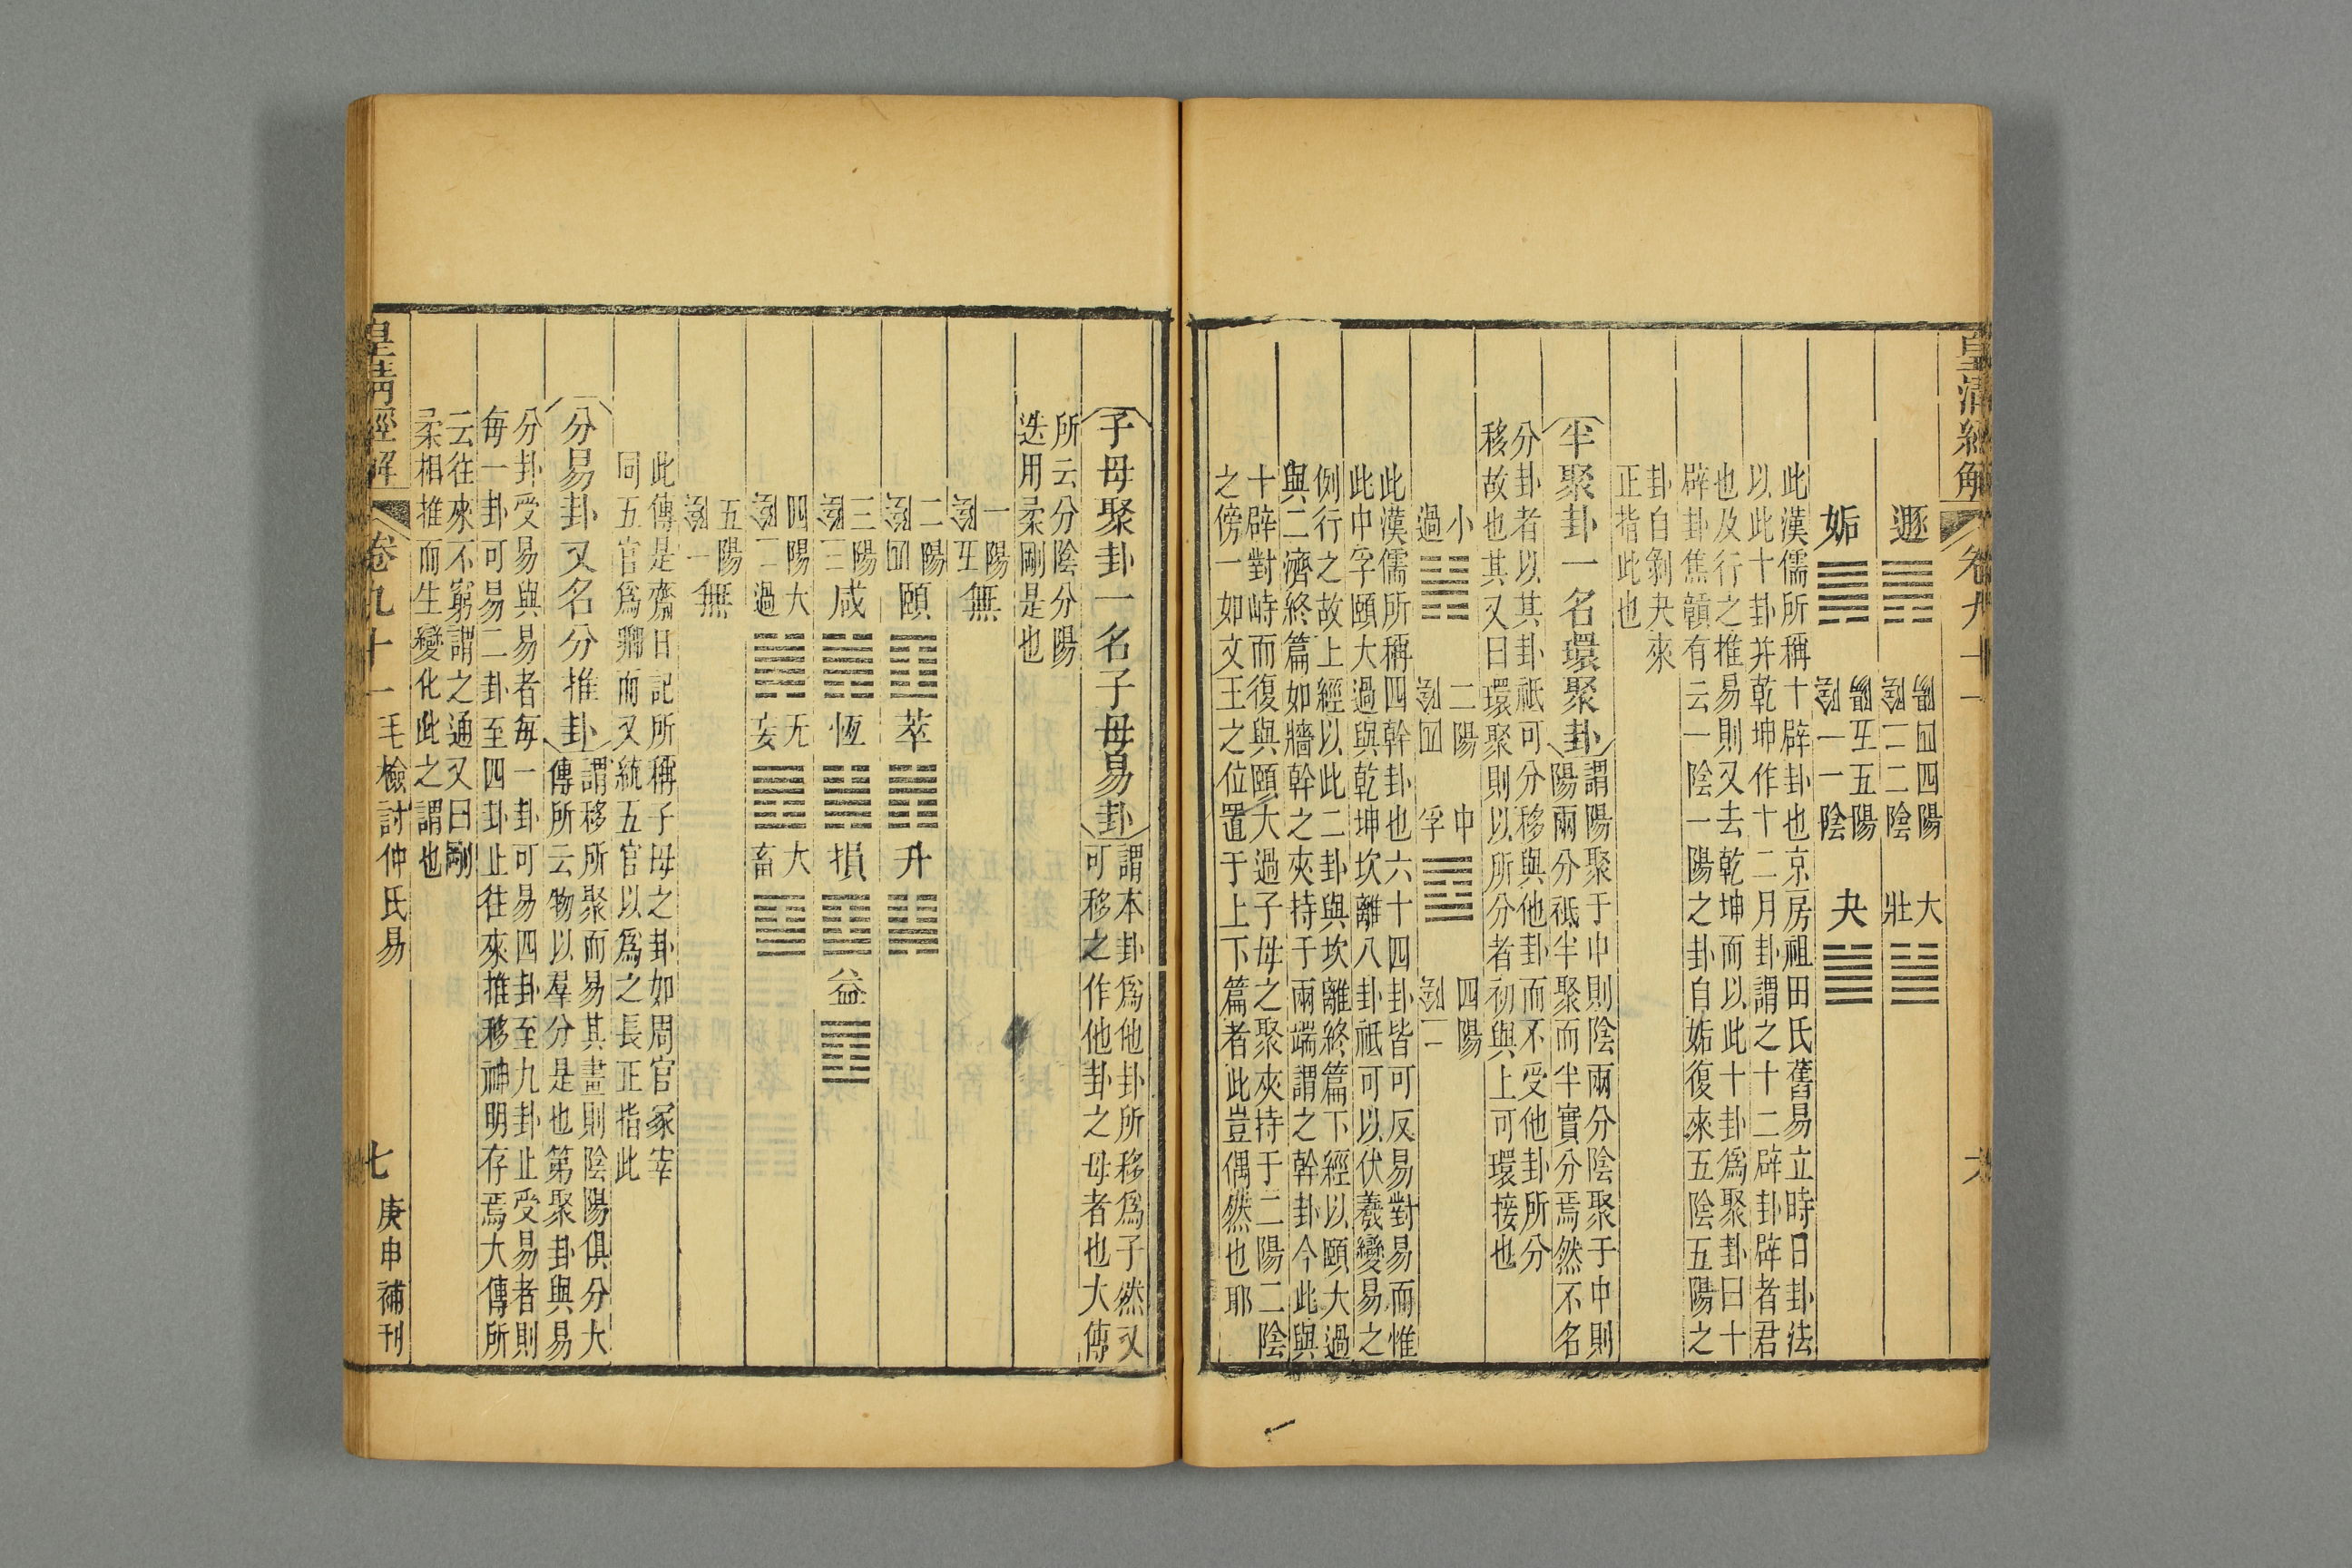 皇清經解 卷九十一 六
遯 陽四四陽
陰二二陰 大
壯
姤 陽五五陽
陰一一陰 夬
此漢儒所稱十辟卦也京房祖田氏舊易立時日卦法
以此十卦幷乾坤作十二月卦謂之十二辟卦辟者君
也及行之推易則又去乾坤而以此十卦爲聚卦曰十
辟卦焦贛有云一陰一陽之卦自姤復來五陰五陽之
卦自剝夬來
正指此也
半聚卦一名環聚卦
謂陽聚于中則陰兩分陰聚于中則
陽兩分祇半聚而半實分焉然不名
分卦者以其卦祇可分移與他卦而不受他卦所分
移故也其又曰環聚則以所分者初與上可環接也
小
過 二陽
四 中
孚 四陽
二
此漢儒所稱四幹卦也六十四卦皆可反易對易而惟
此中孚頤大過與乾坤坎離八卦祇可以伏羲變易之
例行之故上經以此二卦與坎離終篇下經以頤大過
與二濟終篇如牆幹之夾持于兩端謂之幹卦今此與
十辟對峙而復與頤大過子母之聚夾持于二陽二陰
之傍一如文王之位置于上下篇者此豈偶然也耶
子母聚卦一名子母易卦
謂本卦爲他卦所移爲子然又
可移之作他卦之母者也大傳
所云分陰分陽
迭用柔剛是也
一陽
五 無
二陽
四 頤 萃 升
三陽
三 咸 恆 損 益
四陽
二 大
過 无
妄 大
畜
五陽
一 無
此傳是齋日記所稱子母之卦如周官冢宰
同五官爲卿而又統五官以爲之長正指此
分易卦又名分推卦
謂移所聚而易其畫則陰陽俱分大
傳所云物以羣分是也第聚卦與易
分卦受易與易者每一卦可易四卦至九卦止受易者則
每一卦可易二卦至四卦止往來推移神明存焉大傳所
云往來不窮謂之通又曰剛
柔相推而生變化此之謂也
皇清經解 卷九十一 毛檢討仲氏易 七 庚申補刊